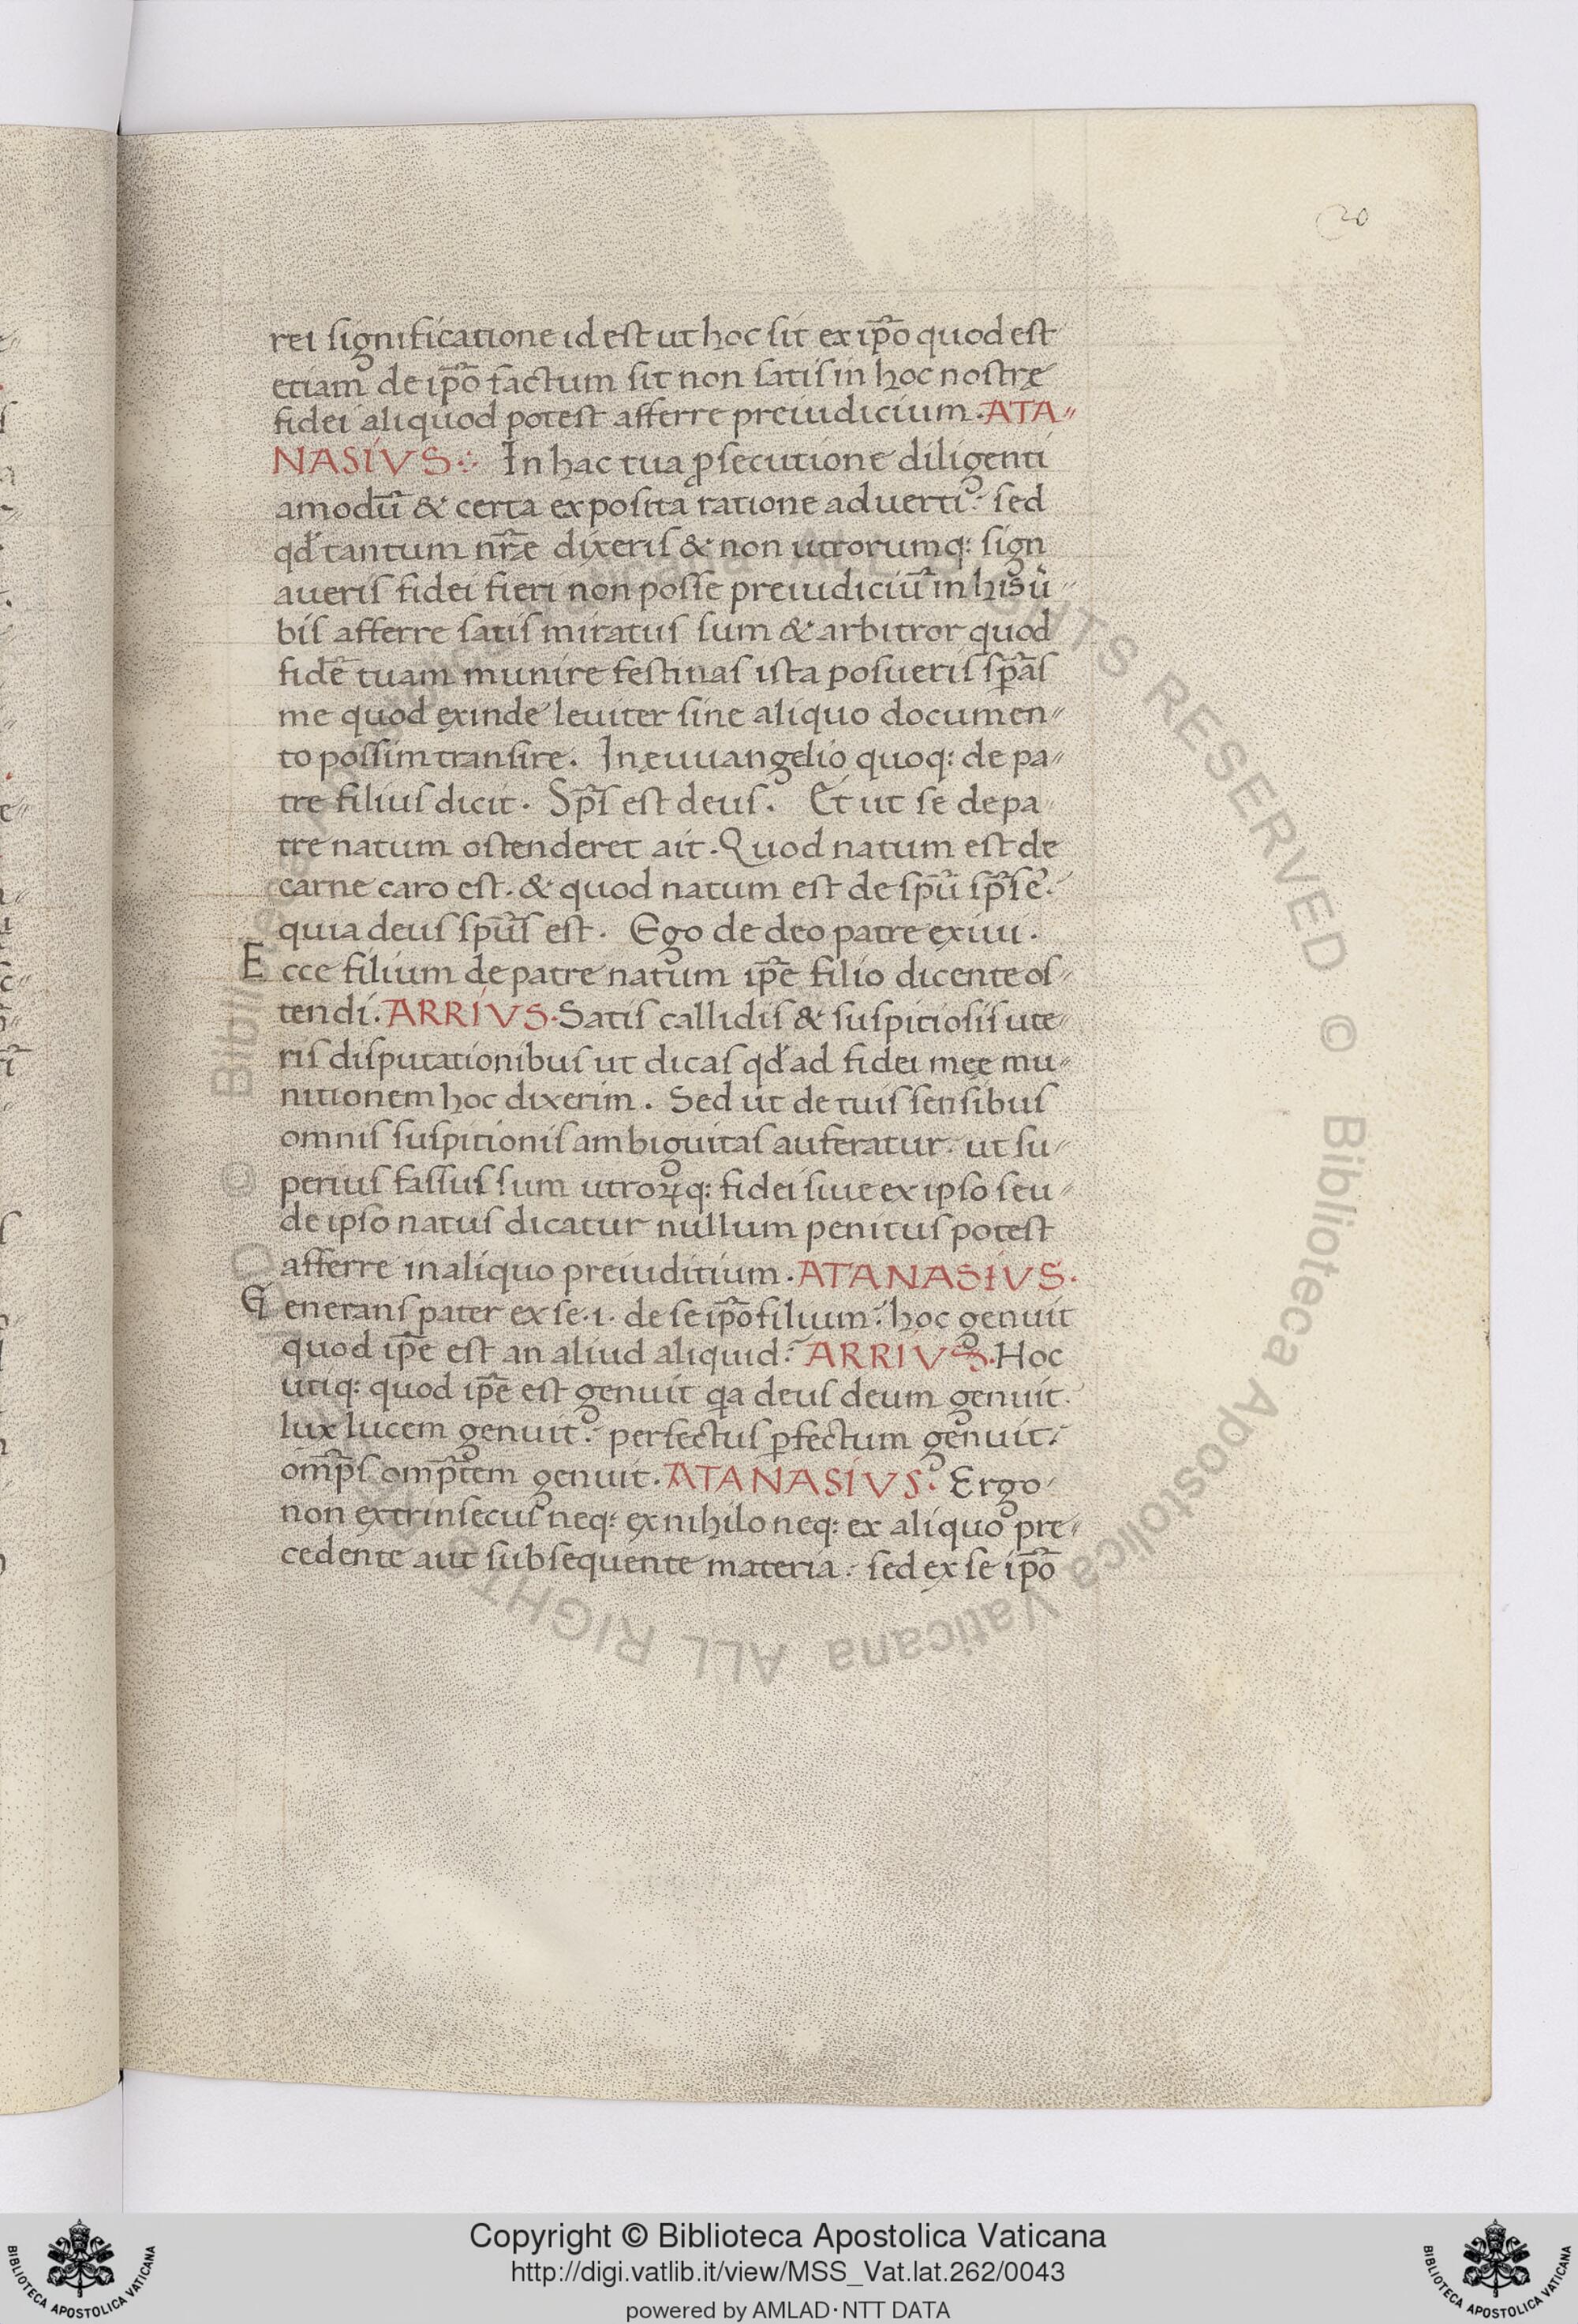 20
rei significatione id est ut hoc sit ex ip̄o quod est
etiam de ip̄o factum sit non satis in hoc nostrę
fidei aliquod potest afferre preiudicium. ATA〃
NASIVS: In hac tua ꝓsecutione diligenti
amodū & certa exposita ratione aduerti: sed
qđ tantum nr̄e dixeris & non utrorumq: sign
aueris fidei fieri non posse preiudiciū in his ū〃
bis afferre satis miratus sum & arbitror quod
fidē tuam munire festinas ista posueris sp̄as
me quod exinde leuiter sine aliquo documen〃
to possim transire. In euuangelio quoq: de pa〃
tre filius dicit. Sp̄s est deus. Et ut se de pa〃
tre natum ostenderet ait. Quod natum est de
carne caro est. & quod natum est de spū sp̄s ē.
quia deus spūs est. Ego de deo patre exiui.
Ecce filium de patre natum ip̄e filio dicente os〃
tendi. ARRIVS. Satis callidis & suspitiosis ute〃
ris disputationibus ut dicas qđ ad fidei meę mu〃
nitionem hoc dixerim. Sed ut de tuis sensibus
omnis suspitionis ambiguitas auferatur: ut su〃
perius fassus sum utroꝝq: fidei siue ex ipso seu〃
de ipso natus dicatur nullum penitus potest
afferre in aliquo preiuditium. ATANASIVS.
Generans pater ex se .i. de se ip̄o filium: hoc genuit
quod ip̄e est an aliud aliquid: ARRIVS. Hoc
utiq: quod ip̄e est genuit qa deus deum genuit.
lux lucem genuit: perfectus ꝑfectum genuit:
om̄ps omp̄tem genuit. ATANASIVS. Ergo
non extrinsecus neq: ex nihilo neq: ex aliquo pre〃
cedente aut subsequente materia: sed ex se ip̄o
© Biblioteca Apostolica Vaticana ALL RIGHTS RESERVED
© Biblioteca Apostolica Vaticana ALL RIGHTS RESERVED
Copyright © Biblioteca Apostolica Vaticana
http://digi.vatlib.it/view/MSS_Vat.lat.262/0043
powered by AMLAD·NTT DATA
BIBLIOTECA APOSTOLICA VATICANA
BIBLIOTECA APOSTOLICA VATICANA